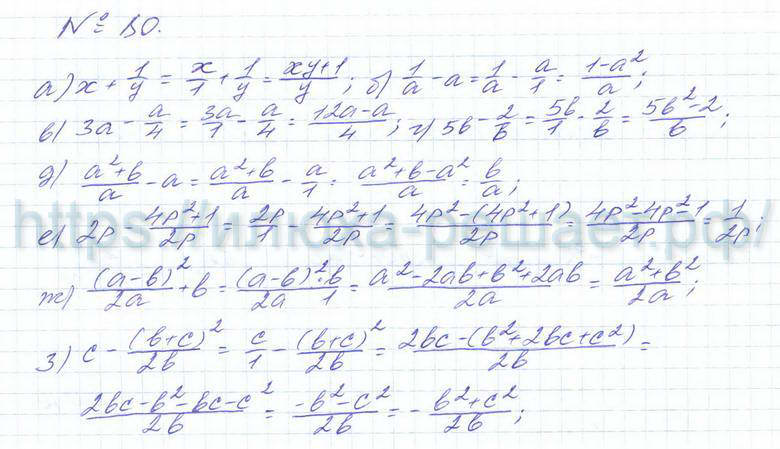 № 80.
а) x + 1/y = x/1 + 1/y = xy+1/y; б) 1/a - a = 1/a - a/1 = 1-a²/a;
в) 3a - a/4 = 3a/1 - a/4 = 12a-a/4; г) 5b - 2/b = 5b/1 - 2/b = 5b²-2/b;
д) a²+b/a - a = a²+b/a - a/1 = a²+b-a²/a = b/a;
е) 2p - 4p²+1/2p = 2p/1 - 4p²+1/2p = 4p²-(4p²+1)/2p = 4p²-4p²-1/2p = 1/2p;
https://илюха-решает.рф/
ж) (a-b)²/2a + b = (a-b)²/2a + b/1 = a²-2ab+b²+2ab/2a = a²+b²/2a;
з) c - (b+c)²/2b = c/1 - (b+c)²/2b = 2bc-(b²+2bc+c²)/2b =
2bc-b²-bc-c²/2b = -b²-c²/2b = - b²+c²/2b;